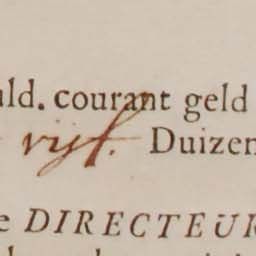 uld. courant geld
vijf. Duizen
e DIRECTEUR